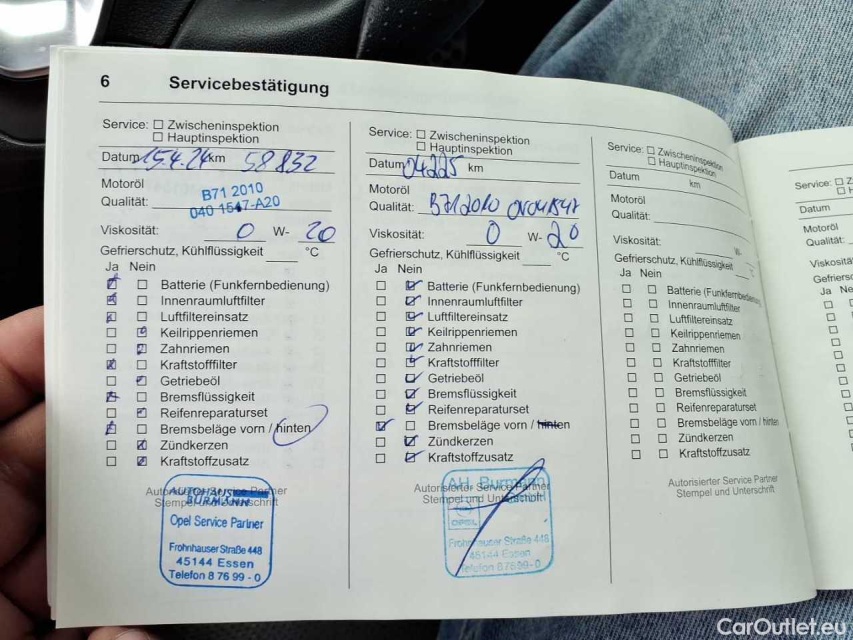 6 Servicebestätigung
Service: ☐ Zwischeninspektion
☐ Hauptinspektion
Datum 15.4.24 km 58832
Motoröl
Qualität: B71 2010
040 1547-A20
Viskosität: 0 W- 20
Gefrierschutz, Kühlflüssigkeit ____ °C
Ja Nein
Batterie (Funkfernbedienung)
Innenraumluftfilter
Luftfiltereinsatz
Keilrippenriemen
Zahnriemen
Kraftstofffilter
Getriebeöl
Bremsflüssigkeit
Reifenreparaturset
Bremsbeläge vorn / hinten
Zündkerzen
Kraftstoffzusatz
Autorisierter Service Partner
Stempel und Unterschrift
AUTOHAUS
BURMANN
Opel Service Partner
Frohnhauser Straße 448
45144 Essen
Telefon 8 76 99 - 0
Service: ☐ Zwischeninspektion
☐ Hauptinspektion
Datum 04225 km
Motoröl
Qualität: B712010
Viskosität: 0 W- 20
Gefrierschutz, Kühlflüssigkeit ____ °C
Ja Nein
Batterie (Funkfernbedienung)
Innenraumluftfilter
Luftfiltereinsatz
Keilrippenriemen
Zahnriemen
Kraftstofffilter
Getriebeöl
Bremsflüssigkeit
Reifenreparaturset
Bremsbeläge vorn / hinten
Zündkerzen
Kraftstoffzusatz
Autorisierter Service Partner
Stempel und Unterschrift
AH. Burmann
OPEL
Frohnhauser Straße 448
45144 Essen
Telefon 8 76 99 - 0
Service: ☐ Zwischeninspektion
☐ Hauptinspektion
Datum km
Motoröl
Qualität:
Viskosität: W-
Gefrierschutz, Kühlflüssigkeit ____ °C
Ja Nein
Batterie (Funkfernbedienung)
Innenraumluftfilter
Luftfiltereinsatz
Keilrippenriemen
Zahnriemen
Kraftstofffilter
Getriebeöl
Bremsflüssigkeit
Reifenreparaturset
Bremsbeläge vorn / hinten
Zündkerzen
Kraftstoffzusatz
Autorisierter Service Partner
Stempel und Unterschrift
Service: ☐ Z
Datum
Motoröl
Qualität:
Viskosität
Gefriersc
Ja Ne
CarOutlet.eu